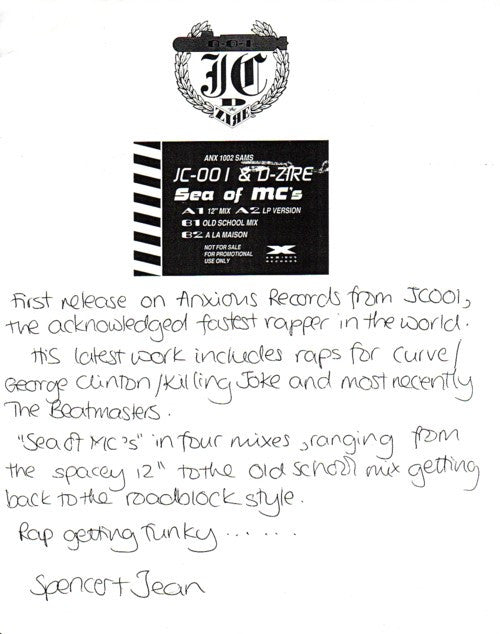 D-0-1
JC
D
ZIRE
ANX 1002 SAMS
JC-001 & D-ZIRE
Sea of MC's
A1 12" MIX A2 LP VERSION
B1 OLD SCHOOL MIX
B2 A LA MAISON
NOT FOR SALE
FOR PROMOTIONAL
USE ONLY
X
ANXIOUS
RECORDS
First release on Anxious Records from JC001,
the acknowledged fastest rapper in the world.
His latest work includes raps for Curve/
George Clinton/Killing Joke and most recently
The Beatmasters.
"Sea of MC's" in four mixes, ranging from
the spacey 12" to the old school mix getting
back to the roadblock style.
Rap getting funky......
Spencer + Jean